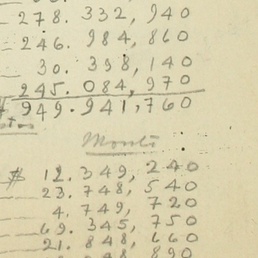 278. 332, 940
246. 984, 860
30. 398, 140
245. 084, 970
$ 949. 941, 760
Monto
$ 12. 349, 240
23. 748, 540
4. 749, 720
69. 345, 750
21. 848, 660